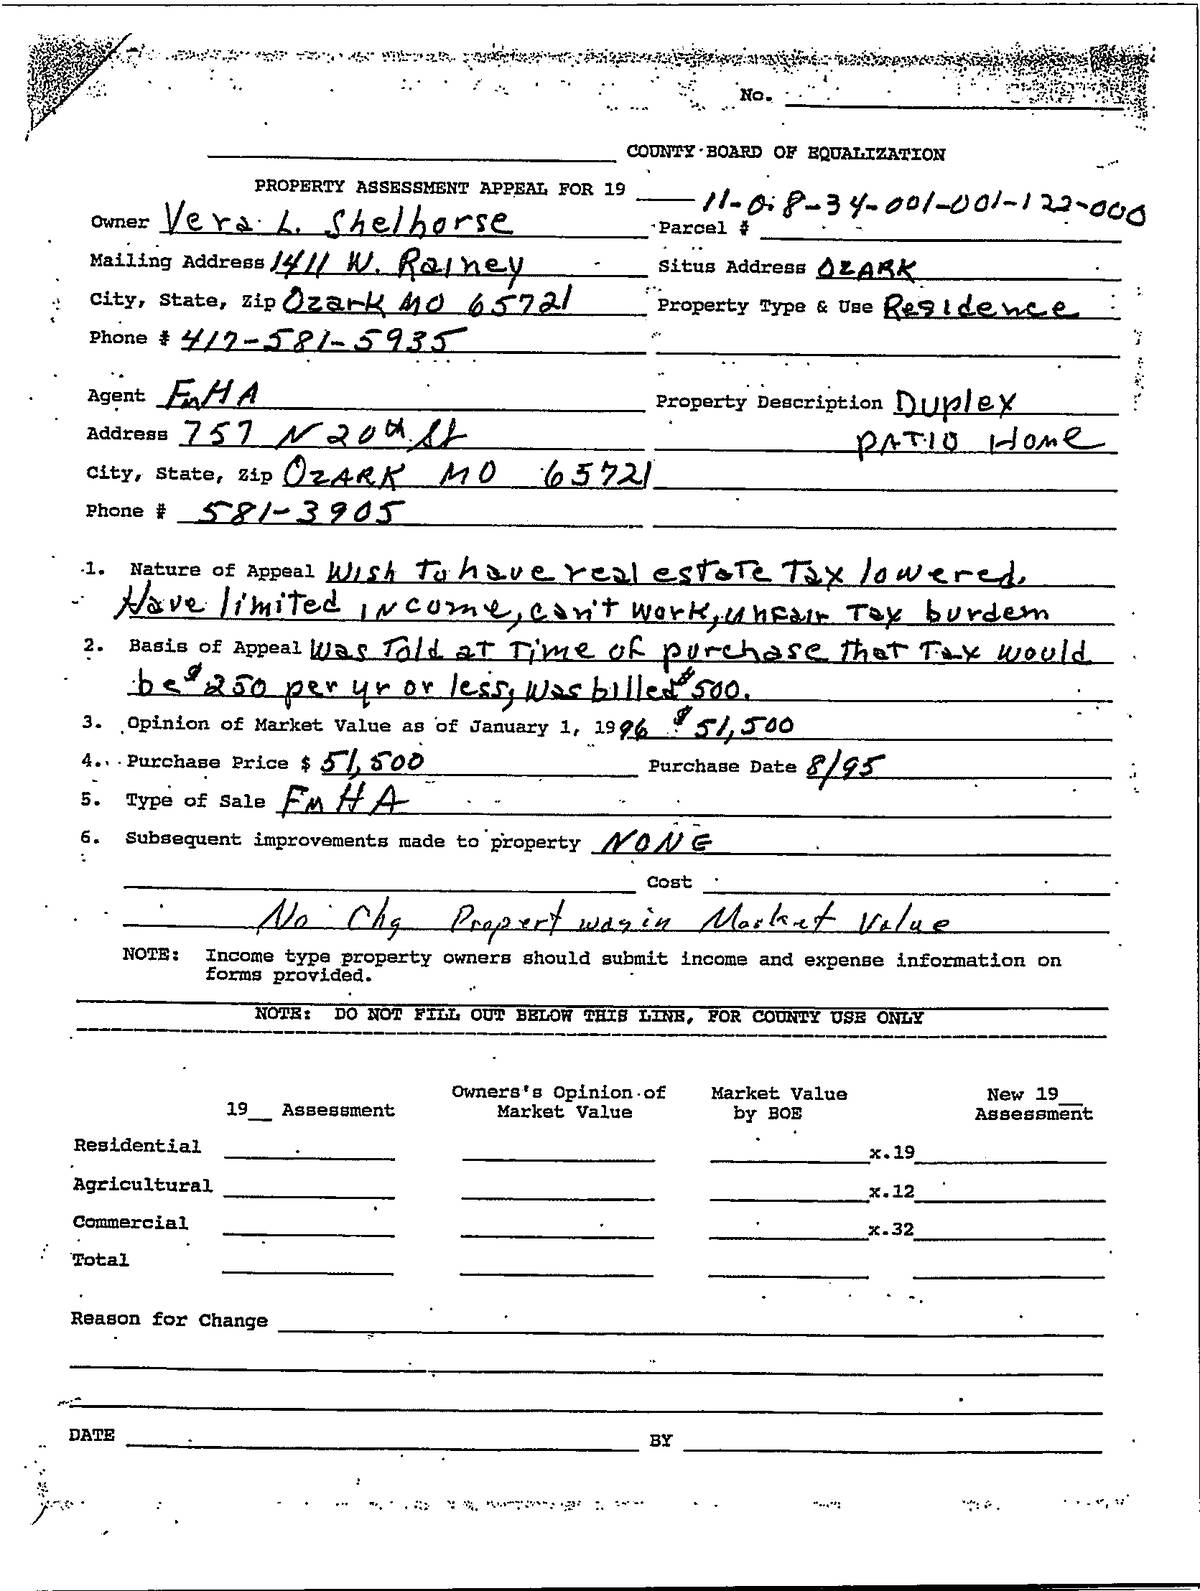 No.
COUNTY BOARD OF EQUALIZATION
PROPERTY ASSESSMENT APPEAL FOR 19
11-0.8-34-001-001-122-000
Owner Vera L. Shelhorse Parcel #
Mailing Address 1411 W. Rainey Situs Address OZARK
City, State, Zip Ozark MO 65721 Property Type & Use Residence
Phone # 417-581-5935
Agent FmHA Property Description Duplex
Address 757 N 20th St PATIO Home
City, State, Zip OZARK MO 65721
Phone # 581-3905
1. Nature of Appeal Wish To have real estate Tax lowered.
Have limited income, can't work, unfair Tax burden
2. Basis of Appeal Was Told at Time of purchase that Tax would
be $250 per yr or less, was billed $500.
3. Opinion of Market Value as of January 1, 1996 $51,500
4. Purchase Price $ 51,500 Purchase Date 8/95
5. Type of Sale FmHA
6. Subsequent improvements made to property NONE
Cost
No Chg Propert was in Market Value
NOTE: Income type property owners should submit income and expense information on
forms provided.
NOTE: DO NOT FILL OUT BELOW THIS LINE, FOR COUNTY USE ONLY
Owners's Opinion of Market Value New 19__
19__ Assessment Market Value by BOE Assessment
Residential x.19
Agricultural x.12
Commercial x.32
Total
Reason for Change
DATE BY